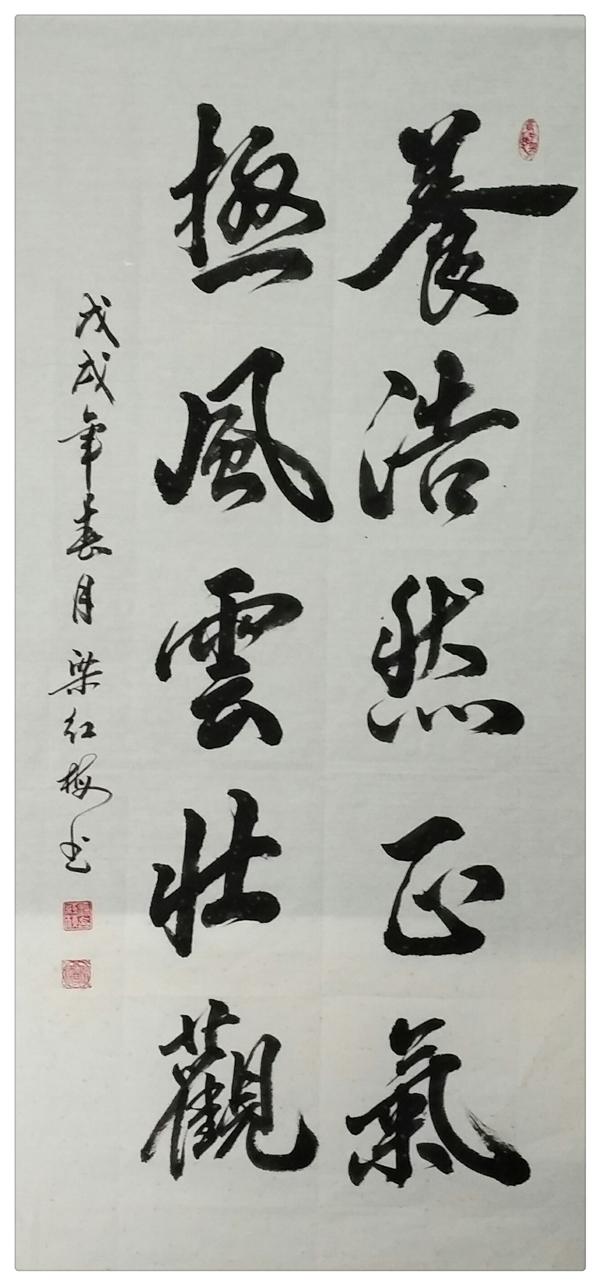 養浩然正氣
極風雲壯觀
戊戌年春月梁红梅书